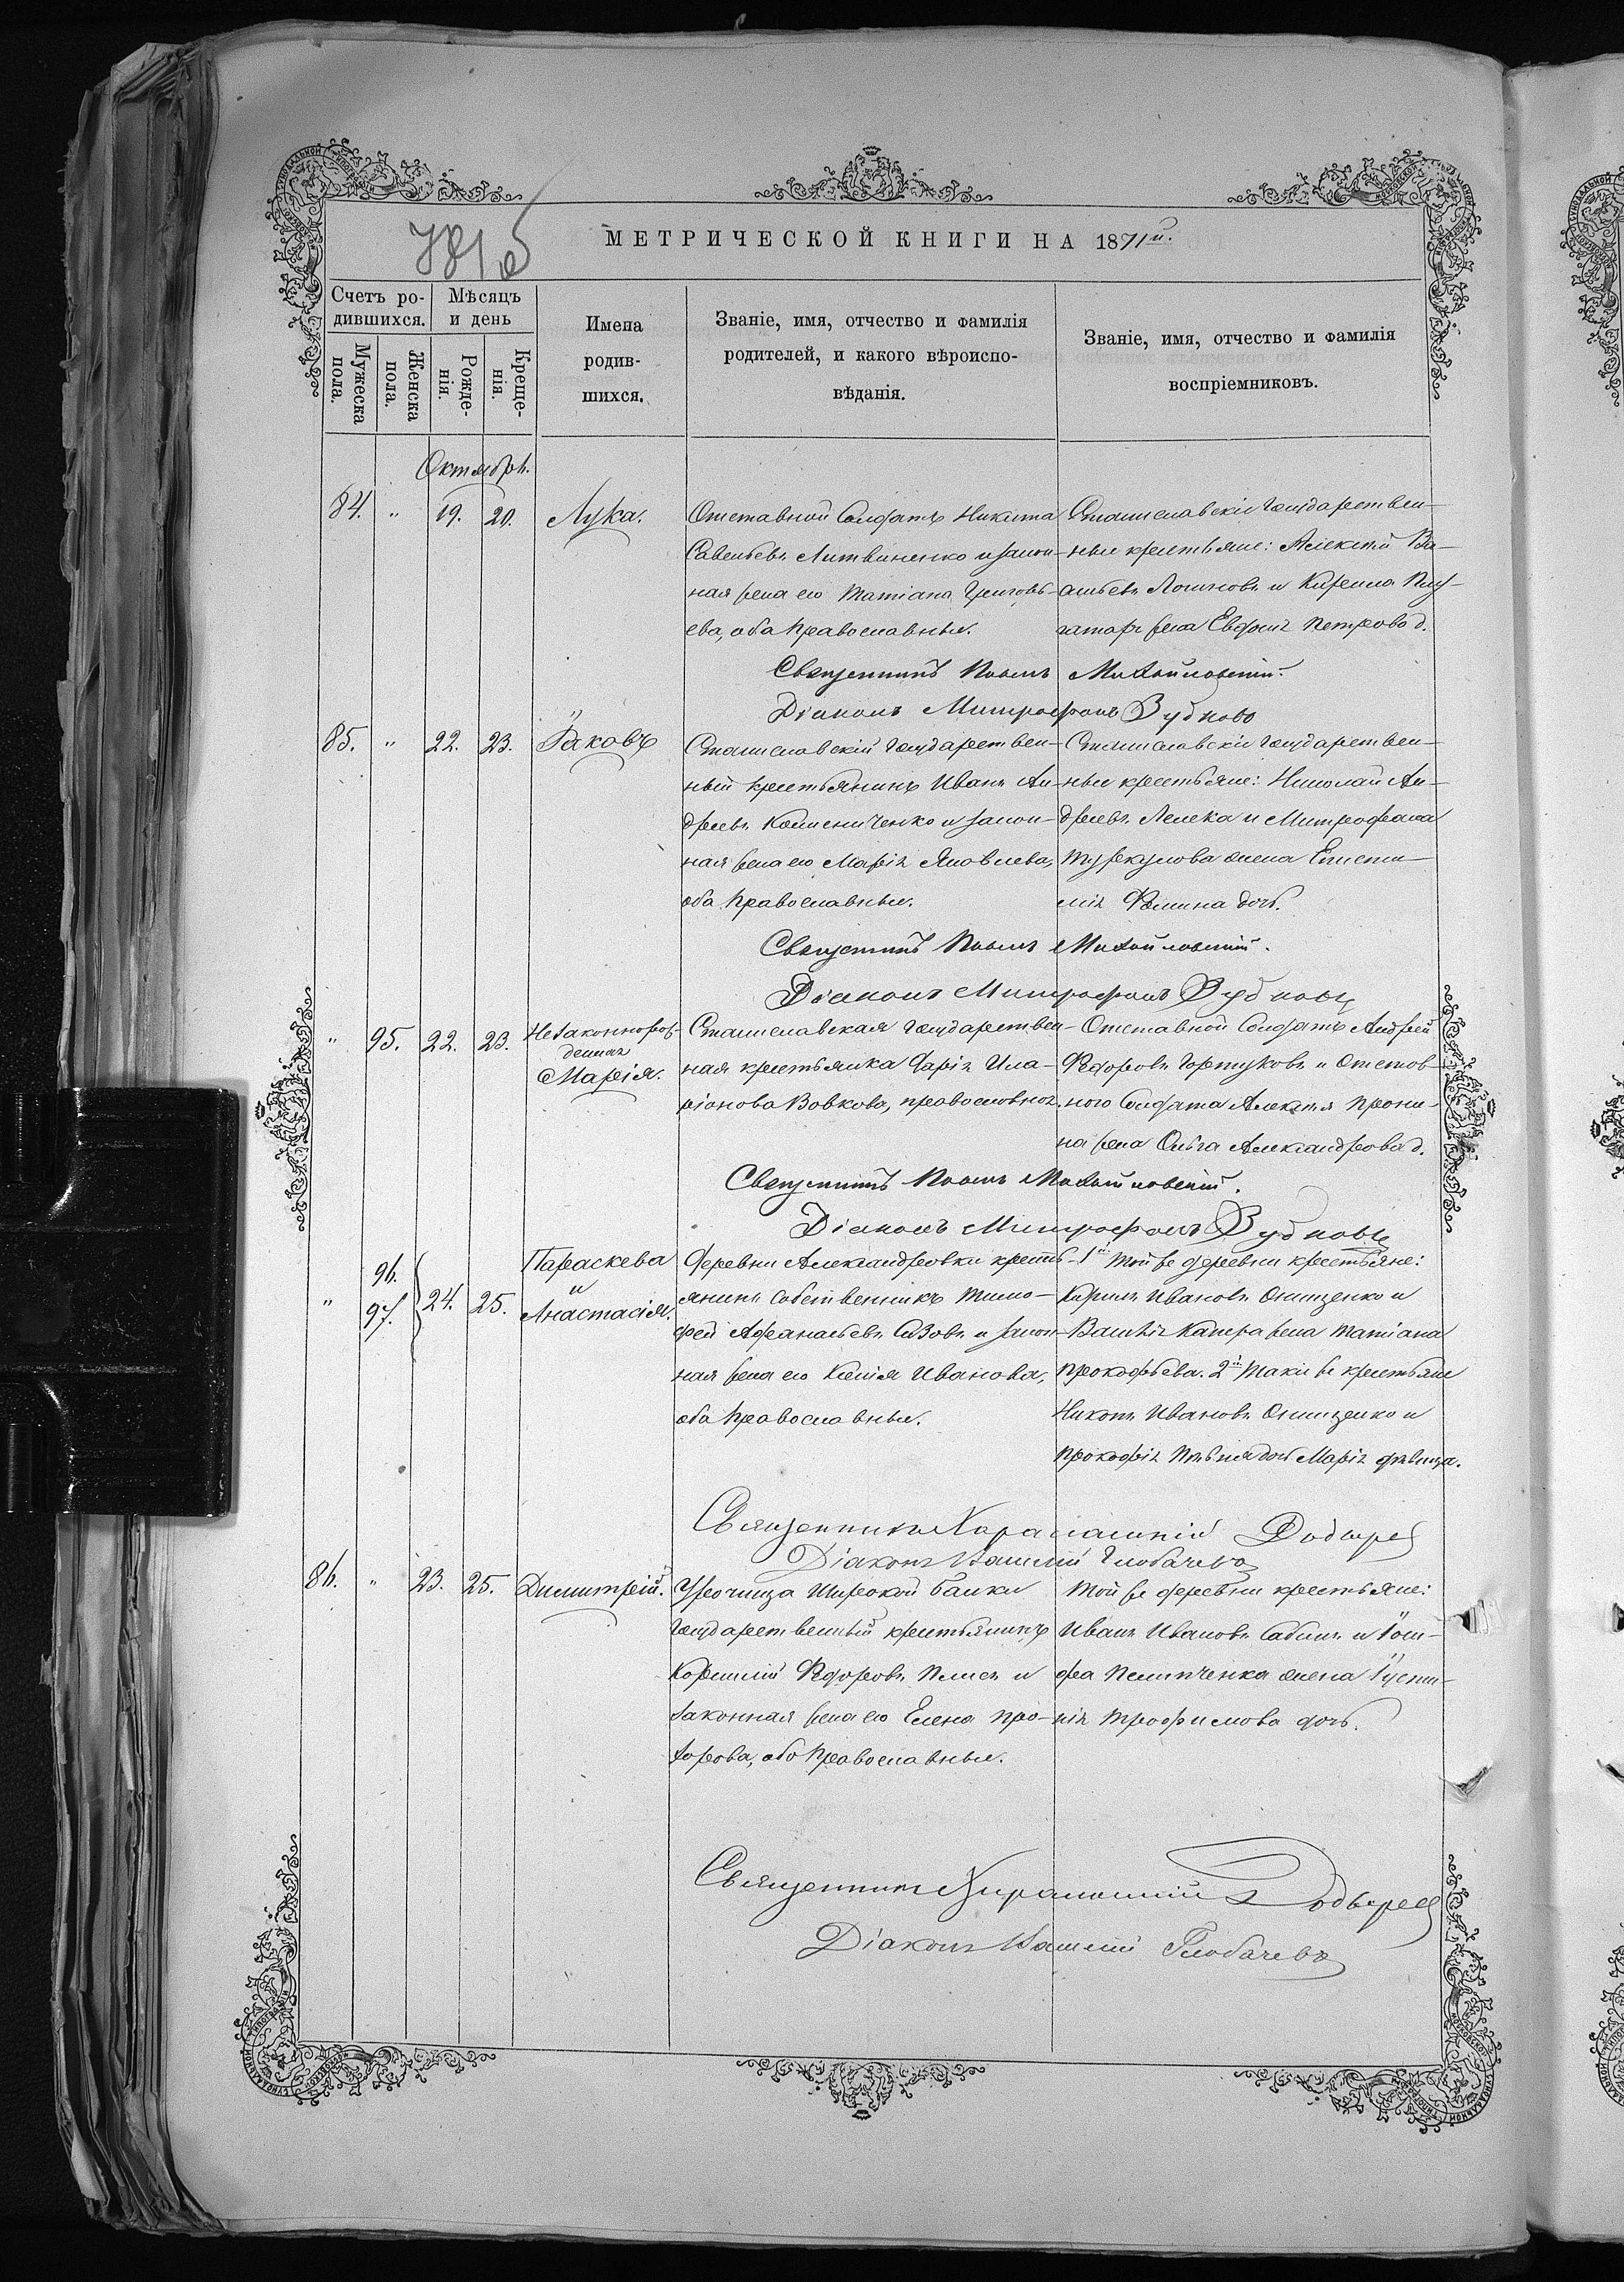 781 об
МЕТРИЧЕСКОЙ КНИГИ НА 1871й.
Счетъ ро-
дившихся.
Мѣсяцъ
и день
Имена
родив-
шихся.
Званіе, имя, отчество и фамилія
родителей, и какого вѣроиспо-
вѣданія.
Званіе, имя, отчество и фамилія
воспріемниковъ.
Мужеска
пола.
Женска
пола.
Рожде-
нія.
Креще-
нія.
Октябрь.
84. " 19. 20. Лука.
Отставной Солдатъ Никита
Савельевъ Литвиненко и закон-
ная жена его Татіана Григорь-
ева, оба православные.
Станиславскіе государствен-
ные крестьяне: Алексѣй Ва-
сильевъ Логиновъ и Кирилла
жена Евфимія Петрова д.
Священникъ Павелъ Михайловскій.
Діаконъ Митрофанъ Зубковъ
85. " 22. 23. Іаковъ
Станиславскій государствен-
ный крестьянинъ Иванъ Ан-
дреевъ Колисниченко и закон-
ная жена его Марія Яковлева,
оба православные.
Станиславскіе государствен-
ные крестьяне: Николай Ан-
дреевъ Лелека и Митрофана
жена
Фомина дочь.
Священникъ Павелъ Михайловскій.
Діаконъ Митрофанъ Зубковъ
" 95. 22. 23. Незаконнорож-
денная
Марія.
Станиславская государствен-
ная крестьянка Дарія Ила-
ріонова Вовкова, православная.
Отставной Солдатъ Андрей
Федоровъ и Отстав-
ного Солдата Алексѣя Прони-
на жена Ольга Александрова д.
Священникъ Павелъ Михайловскій.
Діаконъ Митрофанъ Зубковъ
" 96. 97. 24. 25. Параскева
и
Анастасія.
Деревни Александровки кресть-
янинъ собственникъ Тимо-
фей Афанасьевъ Сизовъ и закон-
ная жена его Ксенія Иванова,
оба православные.
1й Той же деревни крестьяне:
Кирилъ Ивановъ Онищенко и
Василія жена Татіана
Прокофьева. 2й Такіе же крестьяне
Никонъ Ивановъ Онищенко и
Прокофія дочь Марія дѣвица.
Священникъ Харалампій
Діаконъ Василій Глобачевъ
86. " 23. 25. Димитрій.
Урочища Широкой Балки
государственный крестьянинъ
Корнилій Федоровъ и
законная жена его Елена Про-
хорова, оба православные.
Той же деревни крестьяне:
Иванъ Ивановъ и Іоси-
фа жена Іусти-
нія Трофимова дочь.
Священникъ Харалампій
Діаконъ Василій Глобачевъ